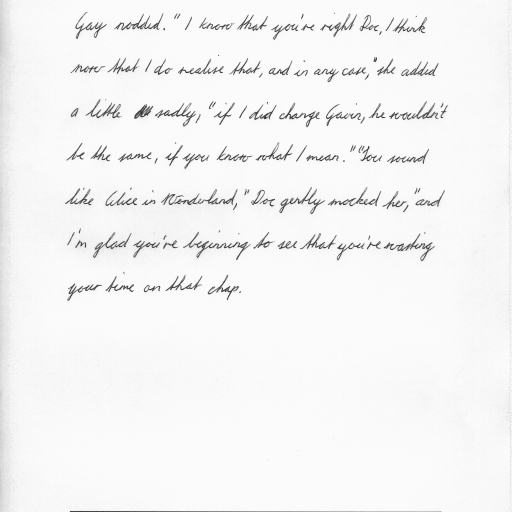 Gay nodded. "I know that you're right Doc, I think
now that I do realise that, and in any case," she added
a little sadly, "if I did change Gavin, he wouldn't
be the same, if you know what I mean." "You sound
like Alice in Wonderland," Doc gently mocked her, "and
I'm glad you're beginning to see that you're wasting
your time on that chap.